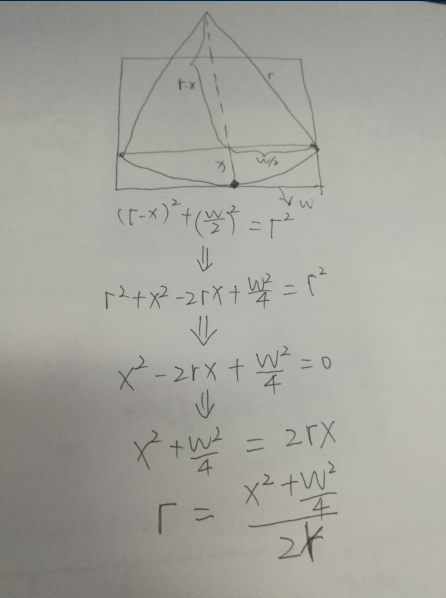 r-x
r
x
W/2
W
(r-x)² + (W/2)² = r²
⇓
r² + x² - 2rx + W²/4 = r²
⇓
x² - 2rx + W²/4 = 0
⇓
x² + W²/4 = 2rx
r = (x² + W²/4)/2x